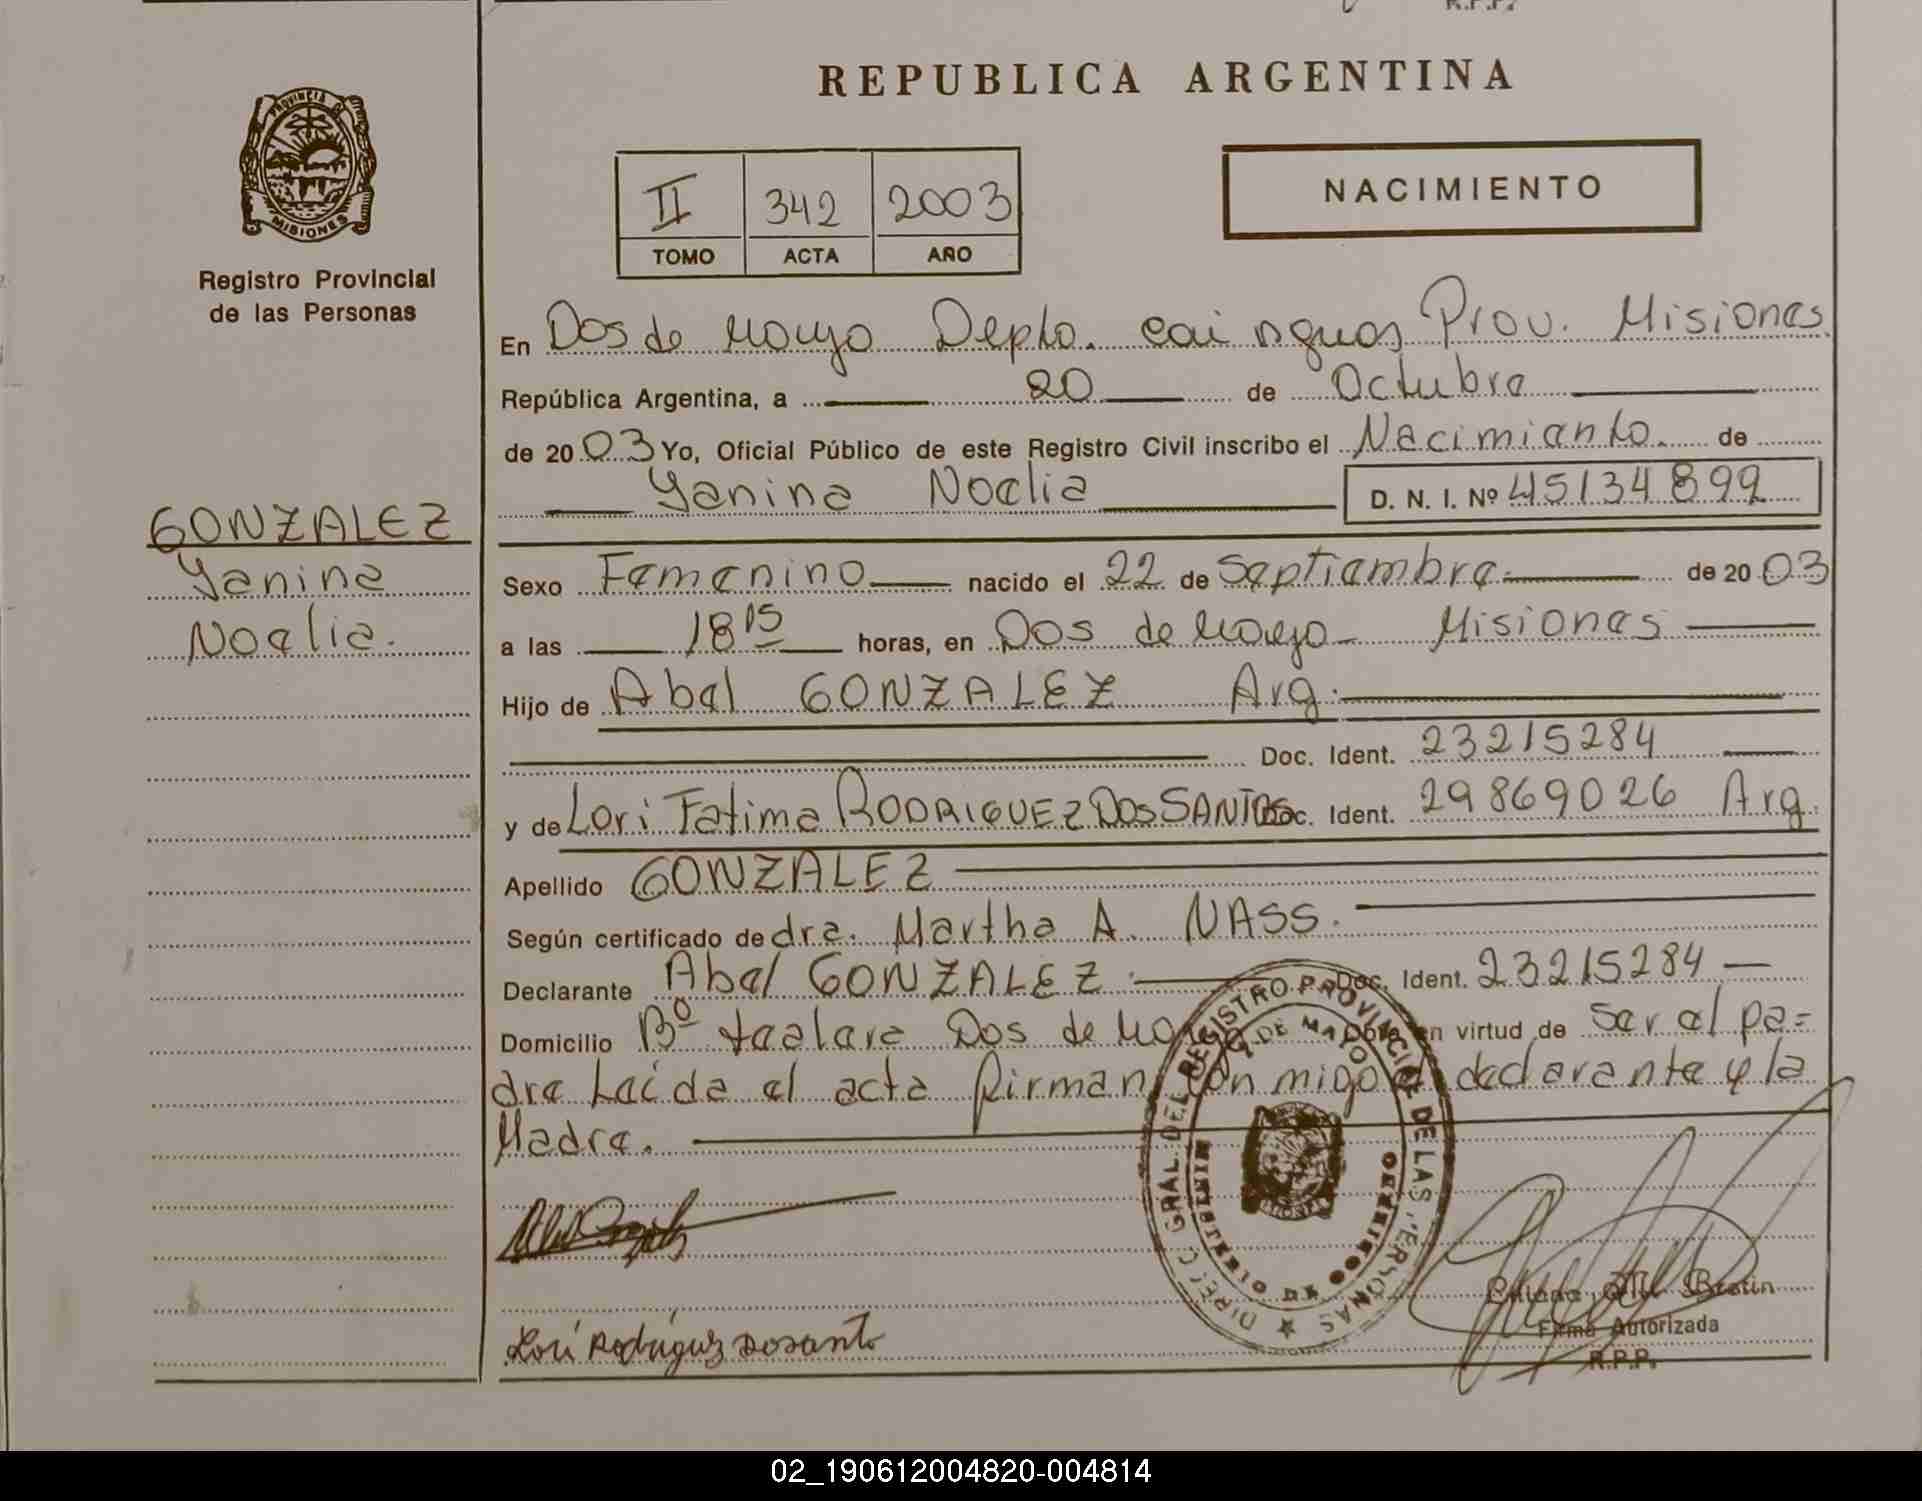 R.P.P.
REPUBLICA ARGENTINA
PROVINCIA DE
MISIONES
Registro Provincial
de las Personas
II 342 2003
TOMO ACTA AÑO
NACIMIENTO
En Dos de Mayo Depto. cainguas Prov. Misiones.
República Argentina, a 20 de Octubre
de 2003 Yo, Oficial Público de este Registro Civil inscribo el Nacimiento. de
Yanina Noelia D. N. I. Nº 45134899
GONZALEZ
Yanina
Noelia.
Sexo Femenino nacido el 22 de Septiembre de 2003
a las 18 15 horas, en Dos de Mayo Misiones
Hijo de Abel GONZALEZ Arg.
Doc. Ident. 23215284
y de Lori Fatima RODRIGUEZ DOS SANTOS Doc. Ident. 29869026 Arg.
Apellido GONZALEZ
Según certificado de dra. Martha A. NASS.
Declarante Abel GONZALEZ Doc. Ident. 23215284
Domicilio Bº Dos de Mayo en virtud de Ser el pa=
dre Leída el acta firman conmigo el declarante y la
Madre.
DIRECC. GRAL. DEL REGISTRO PROVINCIAL DE LAS PERSONAS
DE MAYO
MINISTERIO
GOBIERNO
Lori Rodriguez Dosanto
Firma Autorizada
R.P.P.
02_190612004820-004814